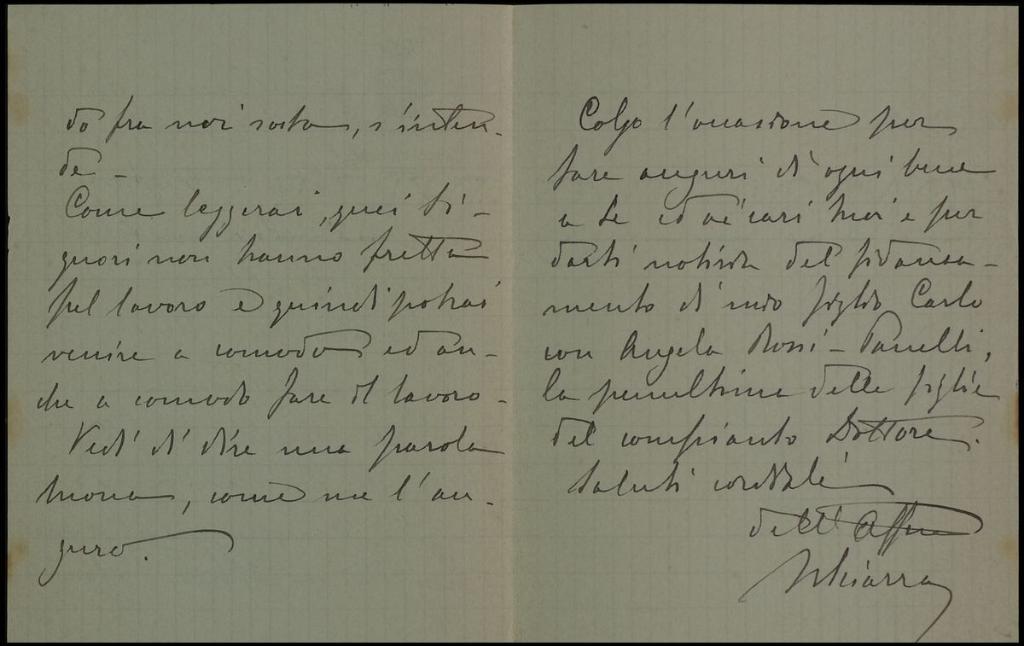 do fra noi sosta, s'inten-
de -
Come leggerai, quei Si-
gnori non hanno fretta
pel lavoro e quindi potrai
venire a comodo ed an-
che a comodo fare il lavoro -
Vedi di dire una parola
buona, come me l'au-
guro.
Colgo l'occasione per
fare auguri di ogni bene
a te ed ai cari tuoi e per
darti notizia del fidanza-
mento di mio figlio Carlo
con Angela Rossi - Panelli,
la penultima delle figlie
del compianto Dottore.
Saluti cordiali
dell' Affmo